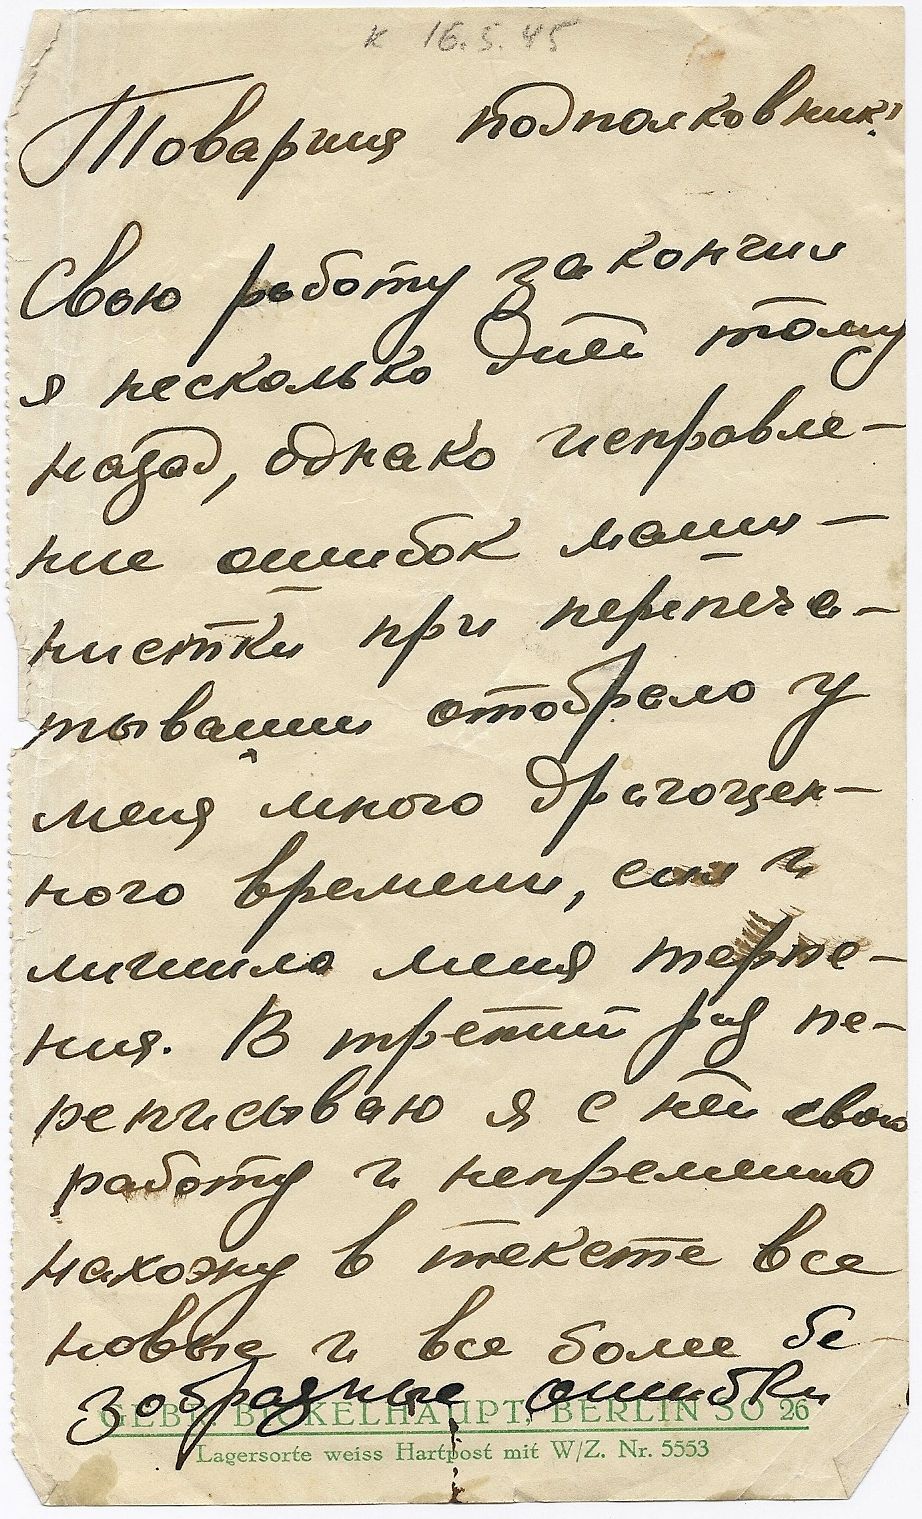 к 16.5.45
Товарищ подполковник!
Свою работу закончил
я несколько дней тому
назад, однако исправле-
ние ошибок маши-
нистки при перепеча-
тывании отобрало у
меня много драгоцен-
ного времени, сил и
лишило меня терпе-
ния. В третий раз пе-
реписываю я с ней свою
работу и непременно
нахожу в тексте все
новые и все более бе-
зобразные ошибки
GEBR. BICKELHAUPT, BERLIN SO 26
Lagersorte weiss Hartpost mit W/Z. Nr. 5553